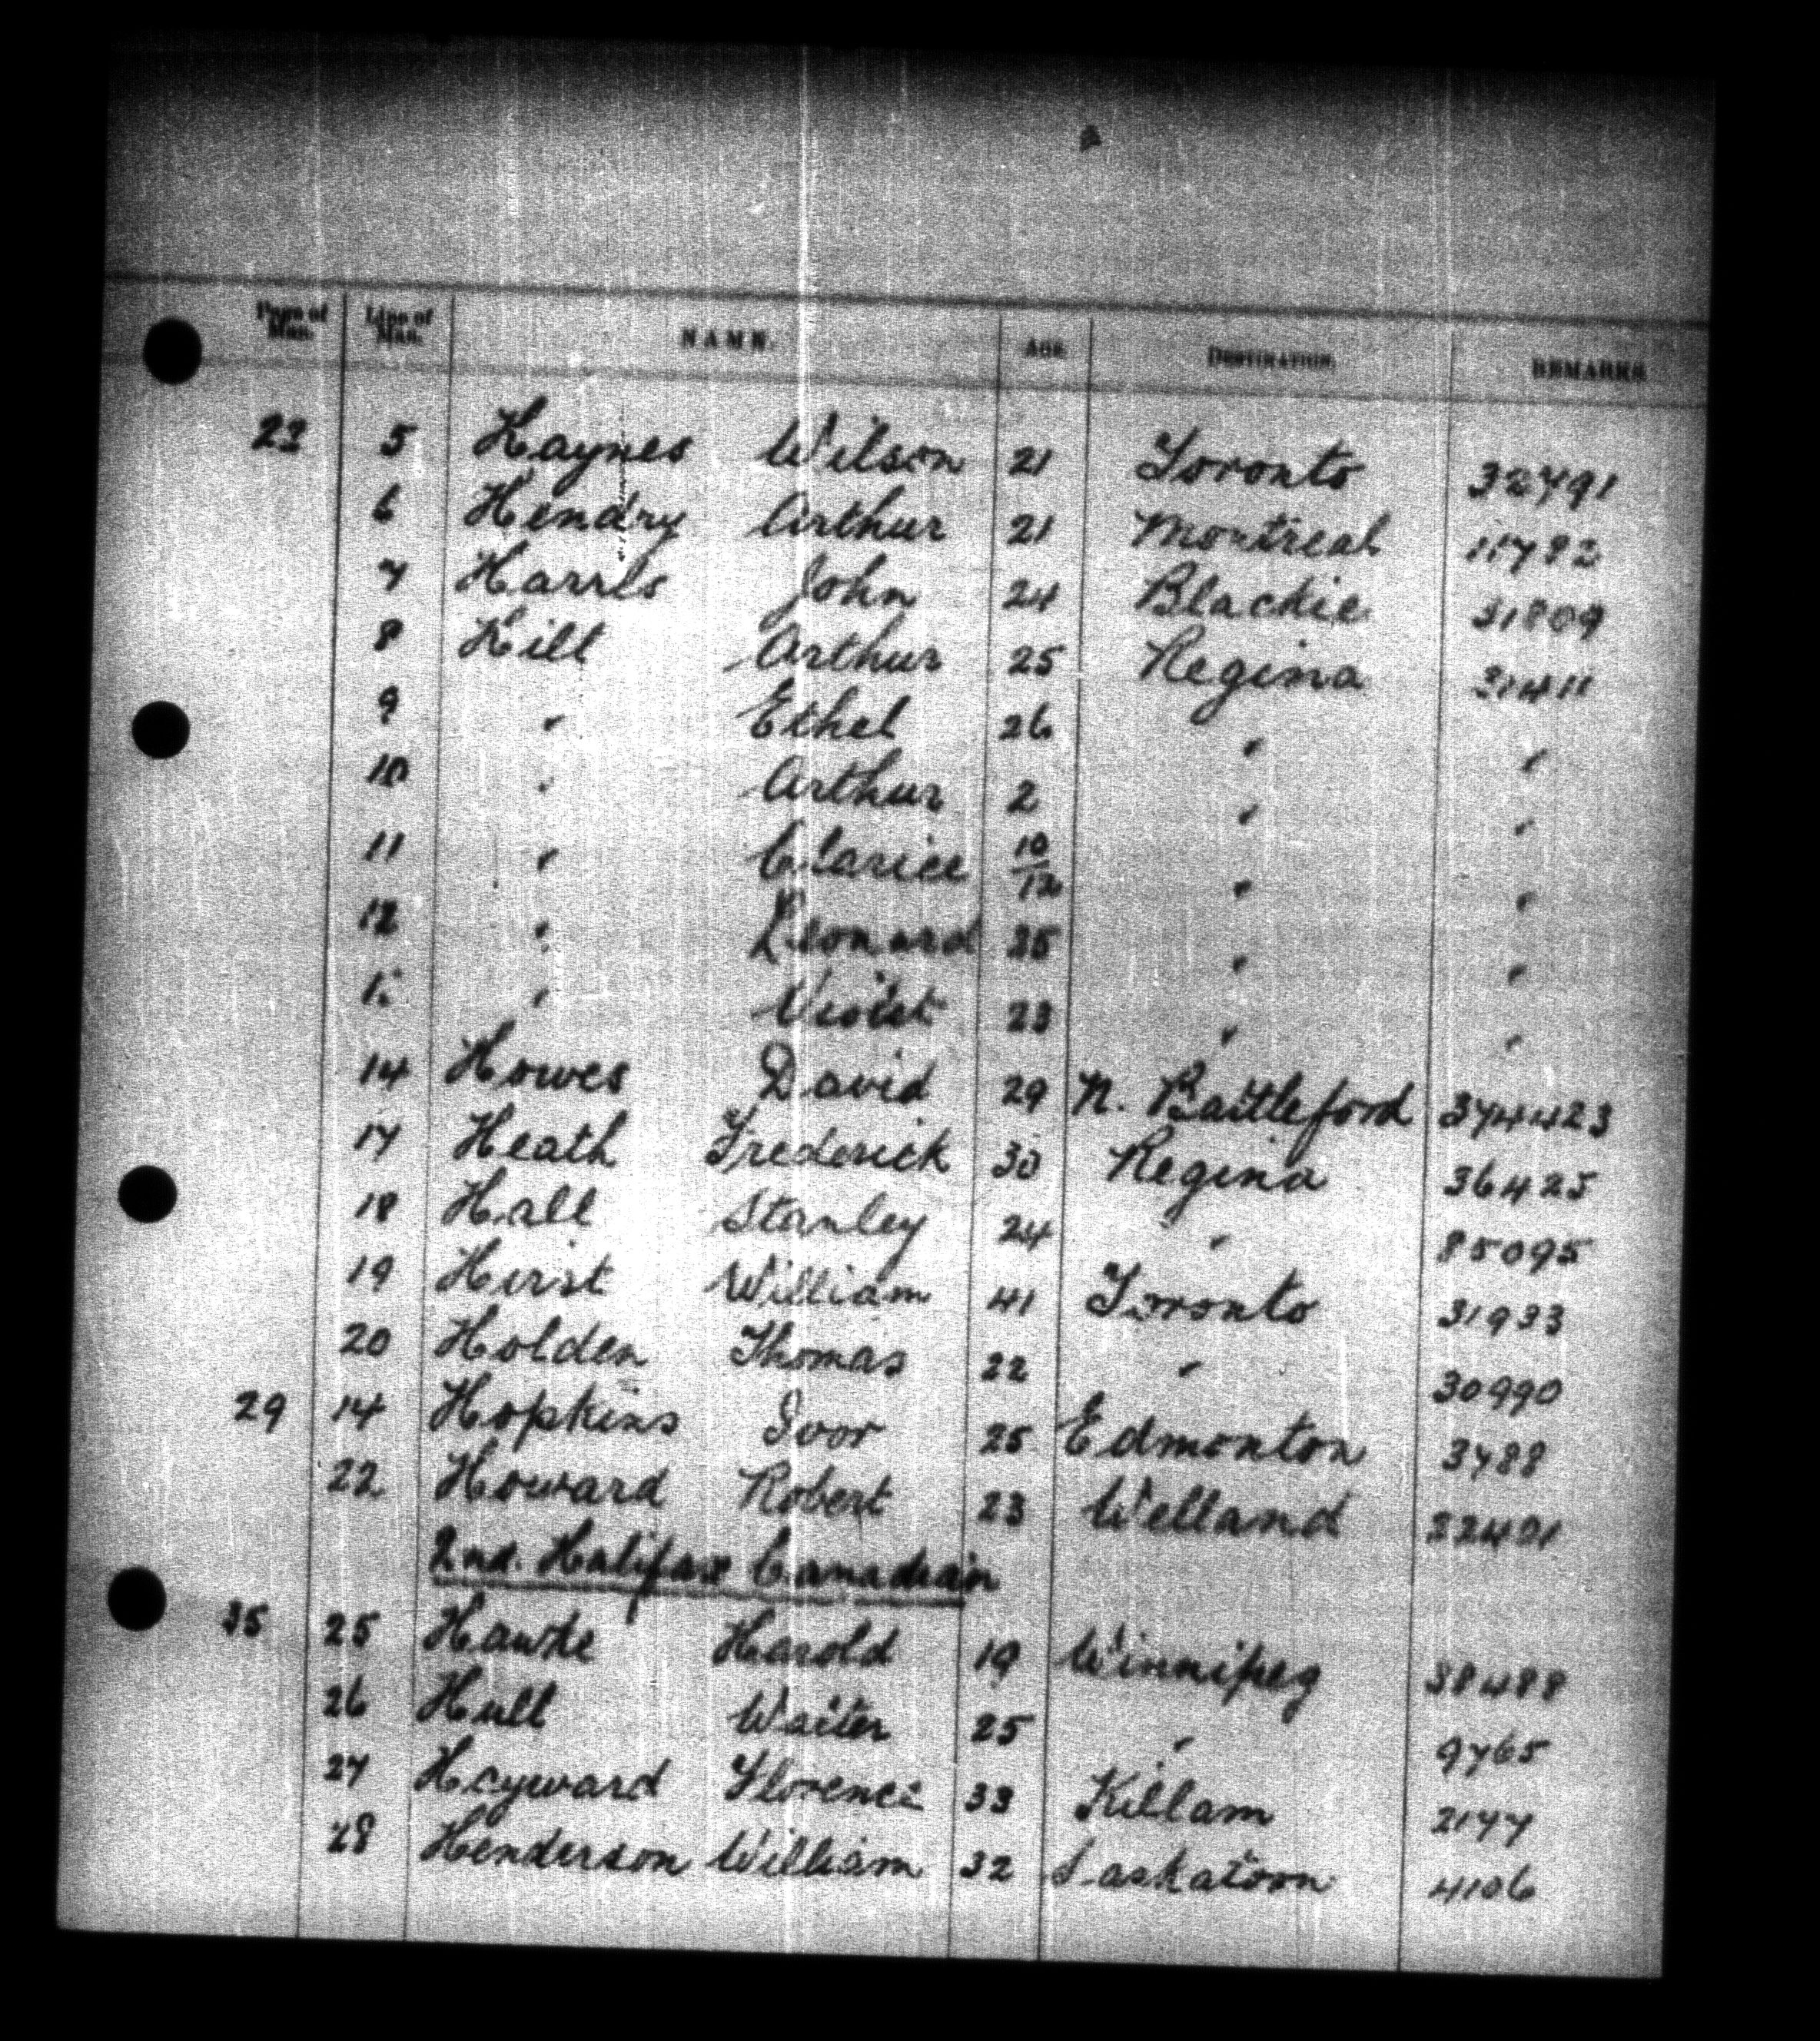 Page of Man. Line of Man. NAME. Age. DESTINATION. REMARKS
23 5 Haynes Wilson 21 Toronto 32791
6 Hendry Arthur 21 Montreal 11782
7 Harris John 24 Blackie 31809
8 Hill Arthur 25 Regina 31411
9 " Ethel 26 " "
10 " Arthur 2 " "
11 " Clarice 10/12 " "
12 " Leonard 35 " "
" Violet 23 " "
14 Howes David 29 N. Battleford 374423
17 Heath Frederick 30 Regina 36425
18 Hall Stanley 24 " 85095
19 Hirst William 41 Toronto 31933
20 Holden Thomas 22 " 30990
29 14 Hopkins Ivor 25 Edmonton 3788
22 Howard Robert 23 Welland 32401
2nd. Halifax Canadian
35 25 Hawke Harold 19 Winnipeg 38488
26 Hull Walter 25 " 9765
27 Hayward Florence 33 Killam 2177
28 Henderson William 32 Saskatoon 4106